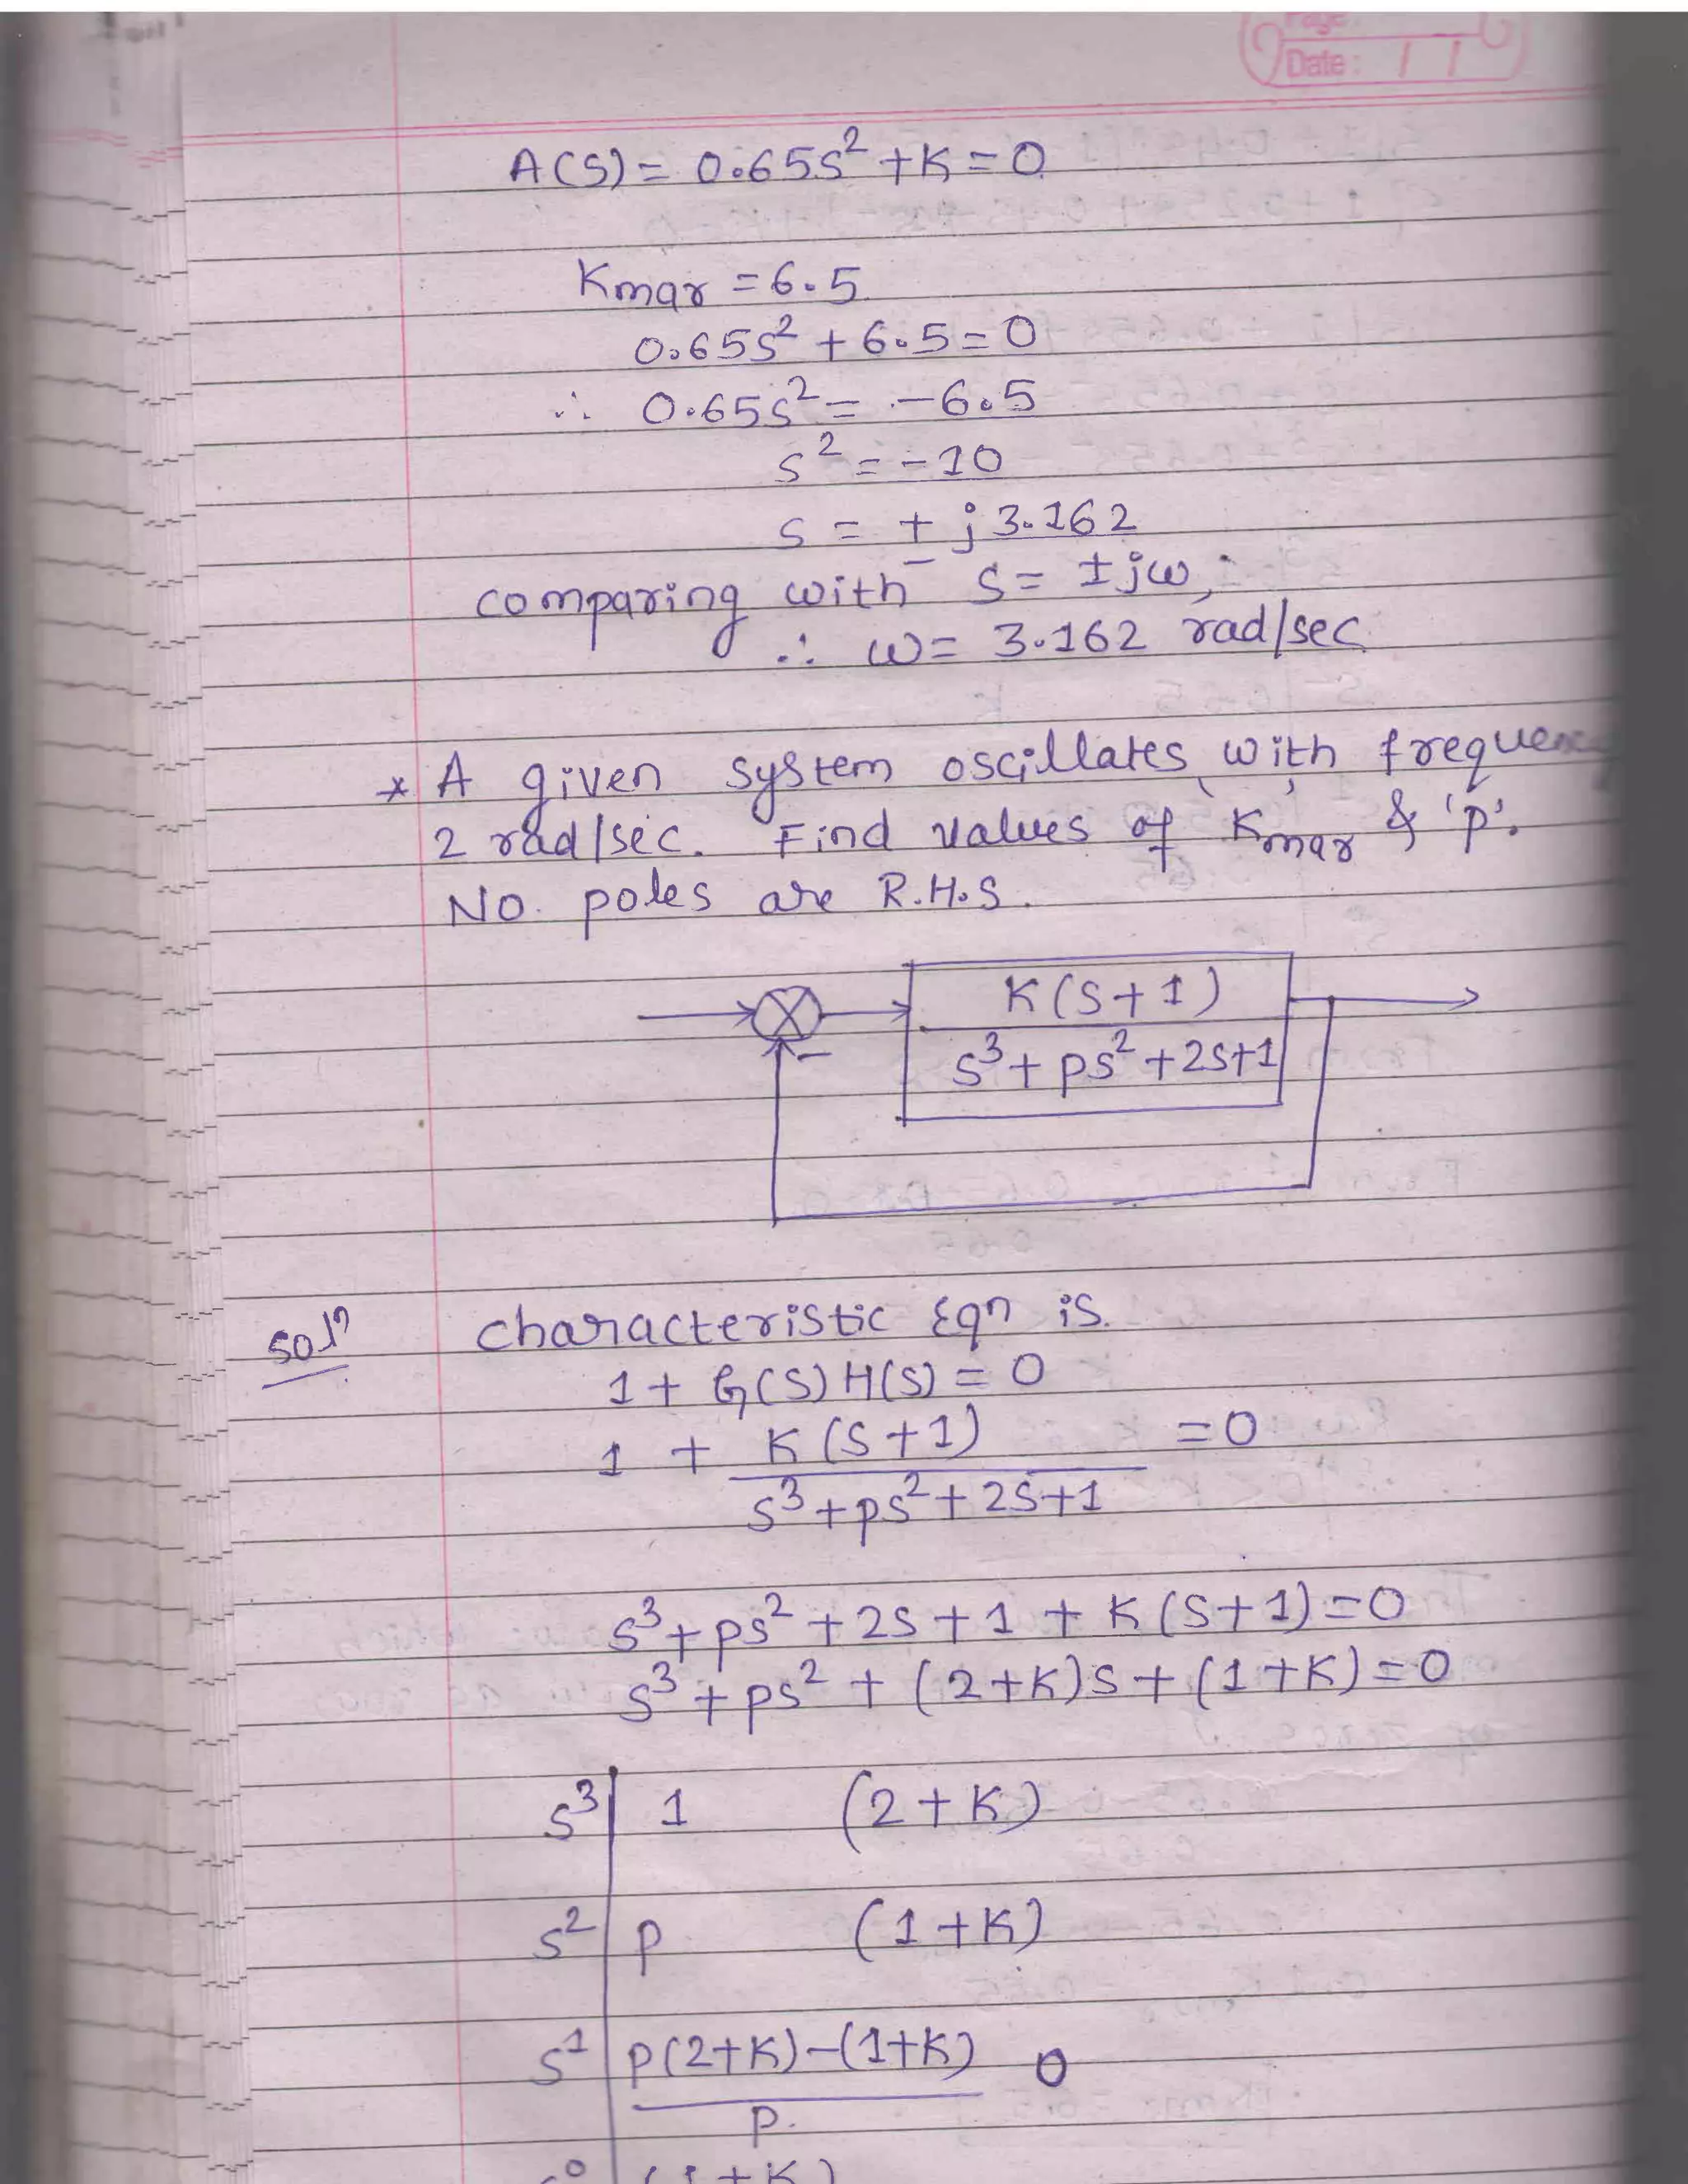 Page
Date :
A(S) = 0.65S² + K = 0
Kmar = 6.5
0.65S² + 6.5 = 0
∴ 0.65S² = -6.5
S² = -10
S = ± j 3.162
comparing with S = ±jω,
∴ ω = 3.162 rad/sec
* A given system oscillates with frequency
2 rad/sec. Find values of Kmar & 'p'.
NO. poles are R.H.S.
K(S+1)
S³ + PS² + 2S+1
−
Solⁿ characteristic Eqn is.
1 + G(S) H(S) = 0
1 + K(S+1) = 0
S³ + PS² + 2S+1
S³ + PS² + 2S + 1 + K(S+1) = 0
S³ + PS² + (2+K)S + (1+K) = 0
S³ 1 (2+K)
S² P (1+K)
S¹ P(2+K)-(1+K) 0
P.
S⁰ (1+K)